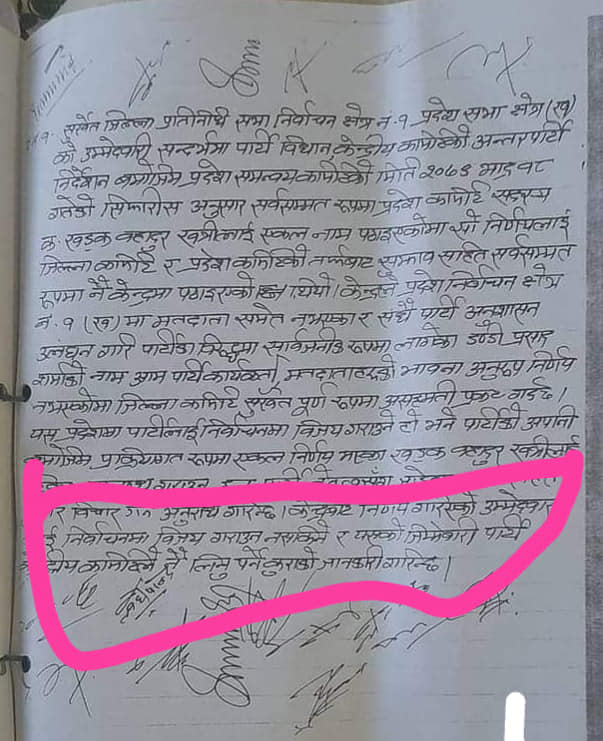 सुर्खेत जिल्ला प्रतीनीधी सभा निर्वाचन क्षेत्र नं. १ प्रदेश सभा क्षेत्र (ख)
को उम्मेदवारी सन्दर्भमा पार्टी विधान, केन्द्रीय कमिटिको अन्तरपार्टी
निर्देशन बमोजिम प्रदेश समन्वय कमिटिको मिति २०७४ भाद्र १८
गतेको सिफारीस अनुसार सर्वसम्मत रूपमा प्रदेश कमिटि सदस्य
क. खड्क बहादुर खत्रीलाई एकल नाम पठाइएकोमा सो निर्णयलाई
जिल्ला कमिटि र प्रदेश कमिटिको तर्फबाट सुझाव सहित सर्वसम्मत
रूपमा नै केन्द्रमा पठाइएको थियो । केन्द्रले प्रदेश निर्वाचन क्षेत्र
नं. १ (ख) मा मतदाता समेत नभएका र सधैं पार्टी अनुशासन
उलंघन गरि पार्टीका विरुद्धमा सार्वजनीक रूपमा लागेका डण्डी प्रसाद
नाम आम पार्टी कार्यकर्ता, मतदाताहरुको भावना अनुरूप निर्णय
नभएकोमा जिल्ला कमिटि सुर्खेत पूर्ण रूपमा असहमती प्रकट गर्दछ ।
यस प्रदेशमा पार्टीलाई निर्वाचनमा विजय गराउने हो भने पार्टीको
बमोजिम प्रक्रियागत रूपमा एकल निर्णय भएका खड्क बहादुर खत्रीलाई
विचार गर्न अनुरोध गरिन्छ । केन्द्रबाट निर्णय गरिएको उम्मेदवार
निर्वाचनमा विजय गराउन नसकिने र यसको जिम्मेवारी पार्टी
कमिटिले नै लिनु पर्ने कुराको जानकारी गरिन्छ ।